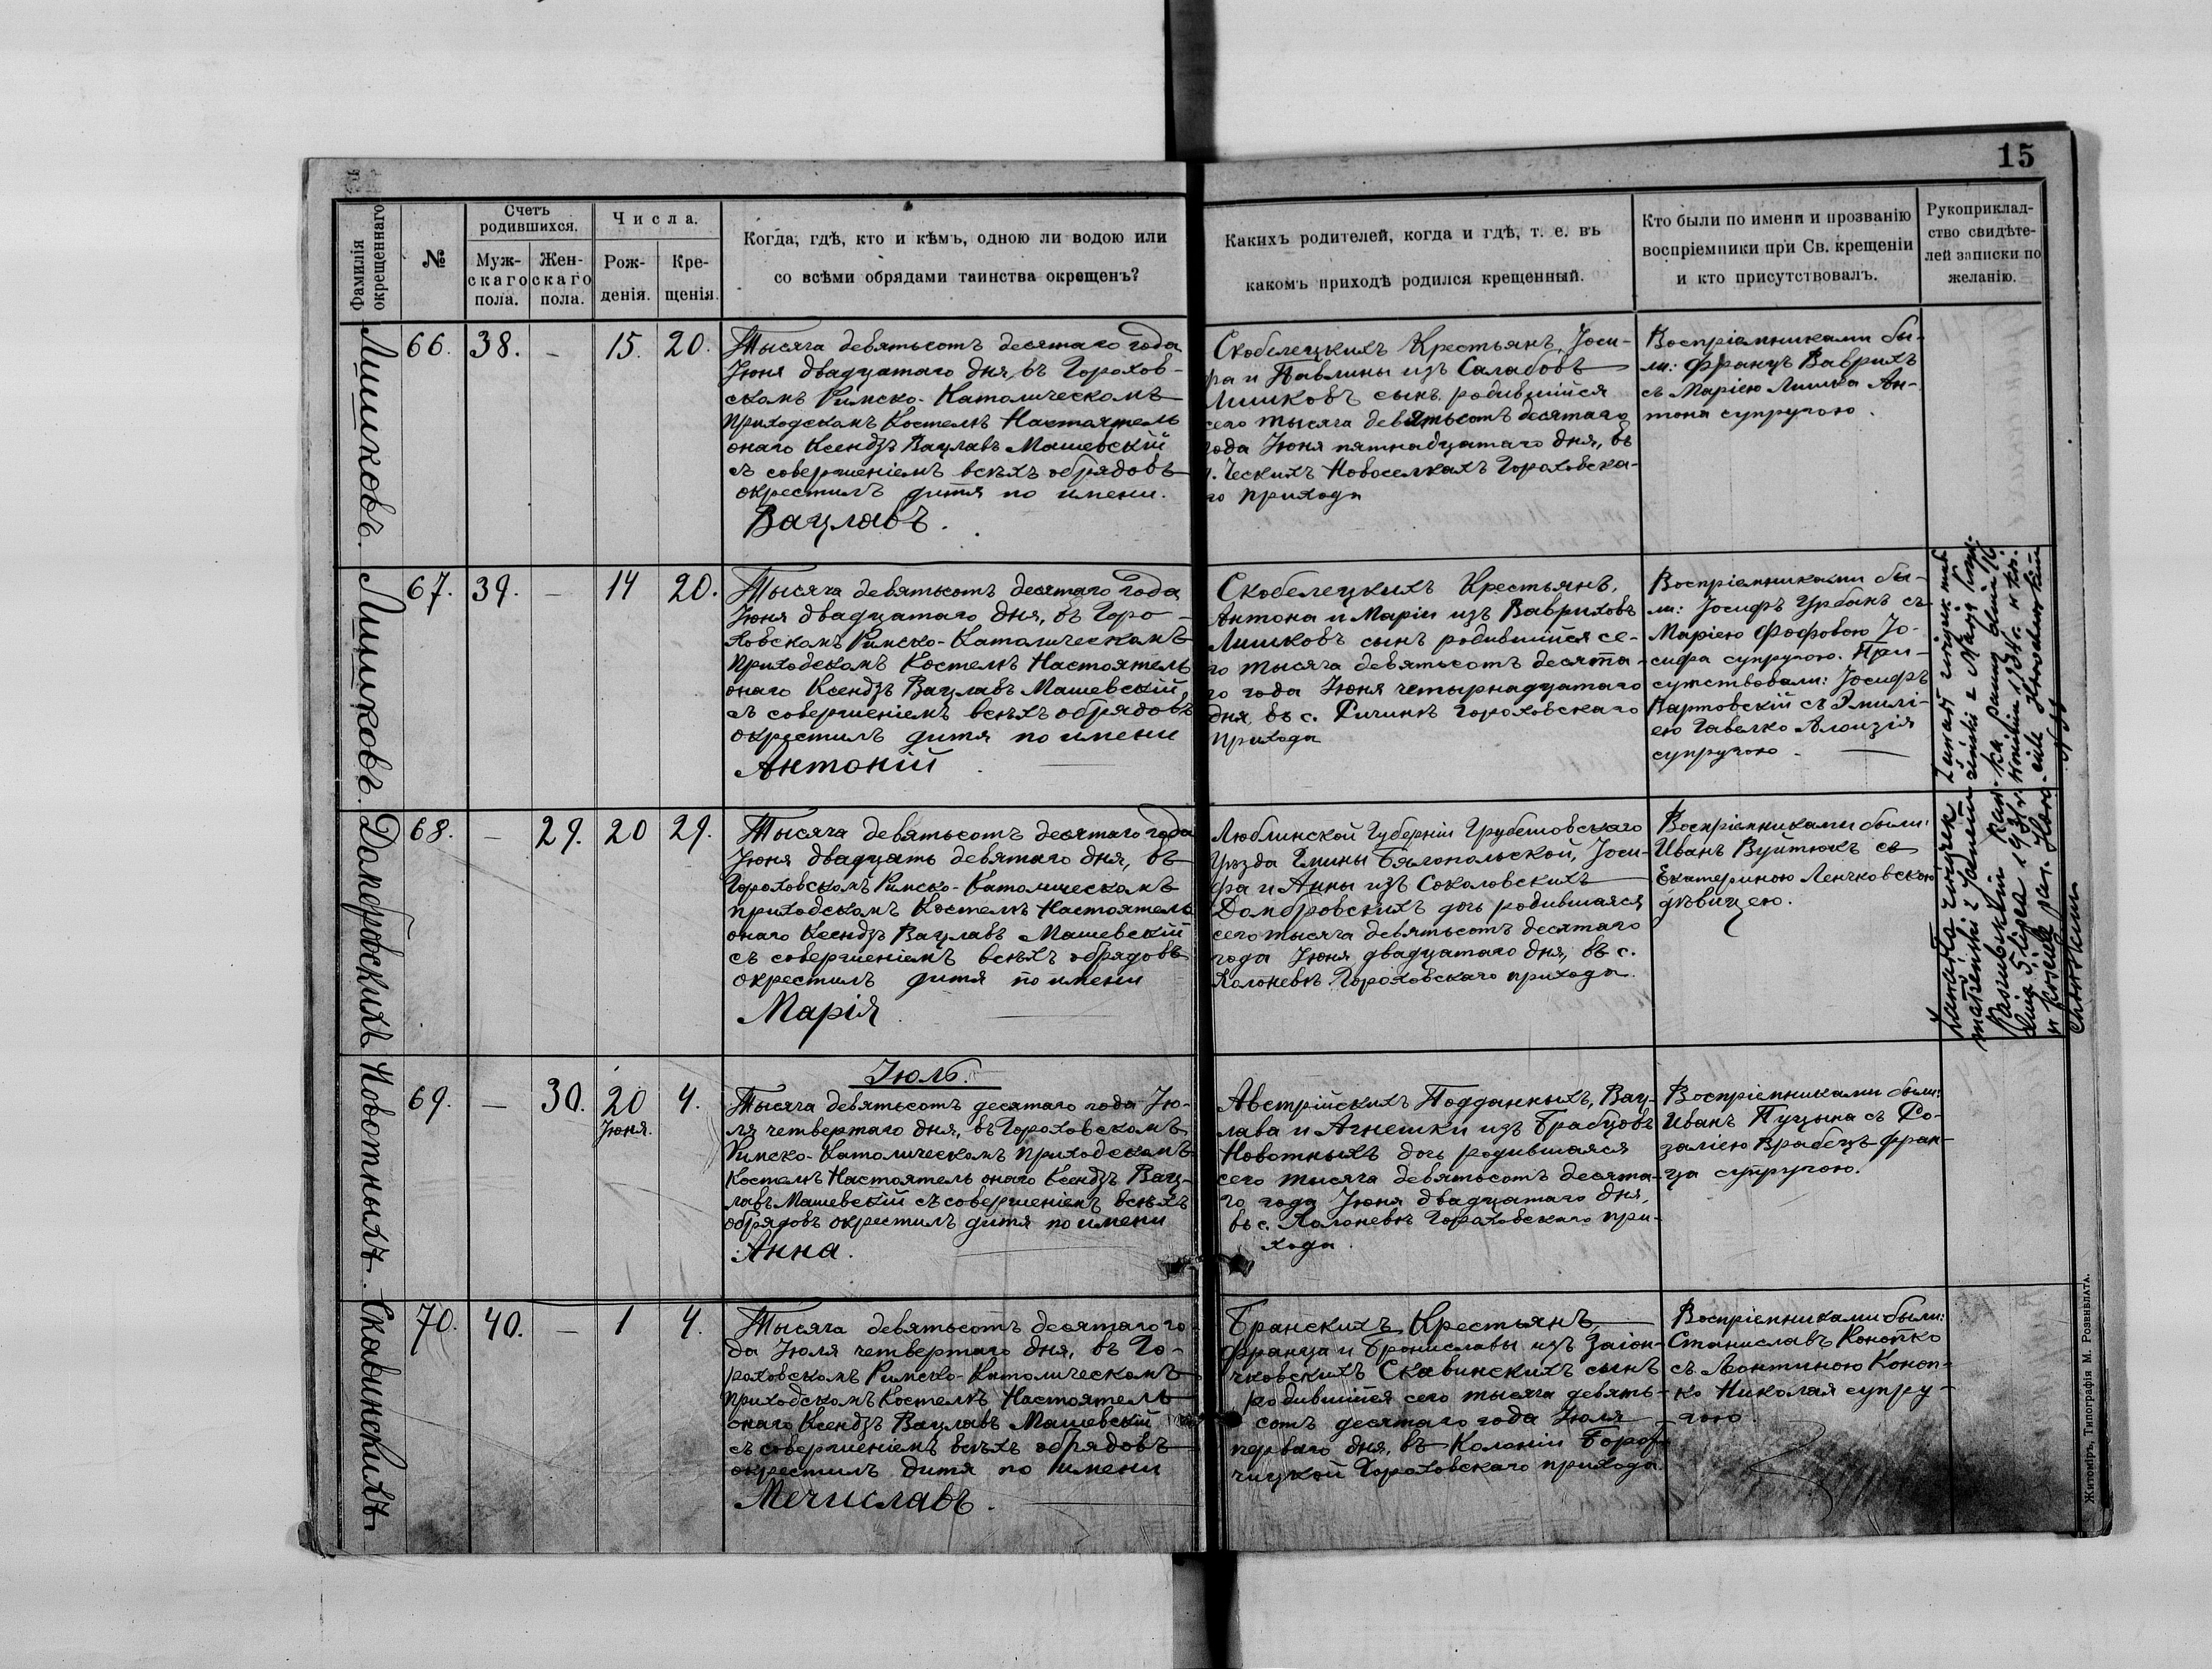 15
Фамилія
окрещеннаго
№
Счетъ
родившихся.
Муж-
скаго
пола.
Жен-
скаго
пола.
Числа.
Рож-
денія.
Кре-
щенія.
Когда, гдѣ, кто и кѣмъ, одною ли водою или
со всѣми обрядами таинства окрещенъ?
Какихъ родителей, когда и гдѣ, т. е. въ
какомъ приходѣ родился крещенный.
Кто были по имени и прозванію
воспріемники при Св. крещеніи
и кто присутствовалъ.
Рукоприклад-
ство свидѣте-
лей записки по
желанію.
Лишковъ.
66. 38. - 15. 20.
Тысяча девятьсотъ десятаго года
Іюня двадцатаго дня, въ Горохов-
скомъ Римско-Католическомъ
приходскомъ Костелѣ Настоятель
онаго Ксендзъ Вацлавъ Машевскій
съ совершеніемъ всѣхъ обрядовъ
окрестилъ дитя по имени.
Вацлавъ.
Скобелецкихъ Крестьянъ, Іоси-
фа и Павлины изъ Салабовъ
Лишковъ сынъ, родившійся
сего тысяча девятьсотъ десятаго
года Іюня пятнадцатаго дня, въ
Ческихъ Новоселкахъ Гороховска-
го прихода
Воспріемниками бы-
ли: Францъ Ваврихъ
съ Маріею Лишка Ан-
тона супругою.
Лишковъ.
67. 39. - 14 20.
Тысяча девятьсотъ десятаго года
Іюня двадцатаго дня, въ Горо-
ховскомъ Римско-Католическомъ
приходскомъ Костелѣ Настоятель
онаго Ксендзъ Вацлавъ Машевскій
съ совершеніемъ всѣхъ обрядовъ
окрестилъ дитя по имени
Антоній.
Скобелецкихъ Крестьянъ,
Антона и Маріи изъ Вавриховъ
Лишковъ сынъ родившійся се-
го тысяча девятьсотъ десята-
го года Іюня четырнадцатаго
дня, въ с. Ричинѣ Гороховскаго
прихода
Воспріемниками бы-
ли: Іосифъ Урбанъ съ
Маріею Фофовою Іо-
сифа супругою. При-
сутствовали: Іосифъ
Партовскій съ Эмилі-
ею Гавелко Алоизія
супругою
Домбровскихъ
68. - 29. 20 29.
Тысяча девятьсотъ десятаго года
Іюня двадцать девятаго дня, въ
Гороховскомъ Римско-Католическомъ
приходскомъ Костелѣ Настоятель
онаго Ксендзъ Вацлавъ Машевскій
съ совершеніемъ всѣхъ обрядовъ
окрестилъ дитя по имени
Марія
Люблинской Губерніи Грубешовскаго
Уѣзда Гмины Бялопольской, Іоси-
фа и Анны изъ Соколовскихъ
Домбровскихъ дочь родившаяся
сего тысяча девятьсотъ десятаго
года Іюня двадцатаго дня, въ с.
Холоневѣ Гороховскаго прихода.
Воспріемниками были:
Иванъ Вуйтюкъ съ
Екатериною Ленчковскою
дѣвицею.
Zawarła związek
małżeński z
Новотныхъ.
69. - 30. 20 Іюня. 4.
Іюль.
Тысяча девятьсотъ десятаго года Ію-
ля четвертаго дня, въ Гороховскомъ
Римско-Католическомъ приходскомъ
Костелѣ Настоятель онаго Ксендзъ Вац-
лавъ Машевскій съ совершеніемъ всѣхъ
обрядовъ окрестилъ дитя по имени
Анна.
Австрійскихъ Подданныхъ, Вац-
лава и Агнешки изъ Брабцовъ
Новотныхъ дочь родившаяся
сего тысяча девятьсотъ десята-
го года Іюня двадцатаго дня,
въ с. Холоневѣ Гороховскаго при-
хода.
Воспріемниками были:
Иванъ Пуцына съ Ро-
заліею Врабецъ Фран-
ца супругою.
Скавинскихъ
70. 40. - 1 4.
Тысяча девятьсотъ десятаго го-
да Іюля четвертаго дня, въ Го-
роховскомъ Римско-Католическомъ
приходскомъ Костелѣ Настоятель
онаго Ксендзъ Вацлавъ Машевскій
съ совершеніемъ всѣхъ обрядовъ
окрестилъ дитя по имени
Мечиславъ.
Бранскихъ Крестьянъ,
Франца и Брониславы изъ Заіон-
чковскихъ Скавинскихъ сынъ
родившійся сего тысяча девять-
сотъ десятаго года Іюля
перваго дня, въ Колоніи Борат-
чицкой Гороховскаго прихода.
Воспріемниками были:
Станиславъ Конопко
съ Леонтиною Коноп-
ко Николая супру-
гою.
Житоміръ, Типографія М. Розенблата.